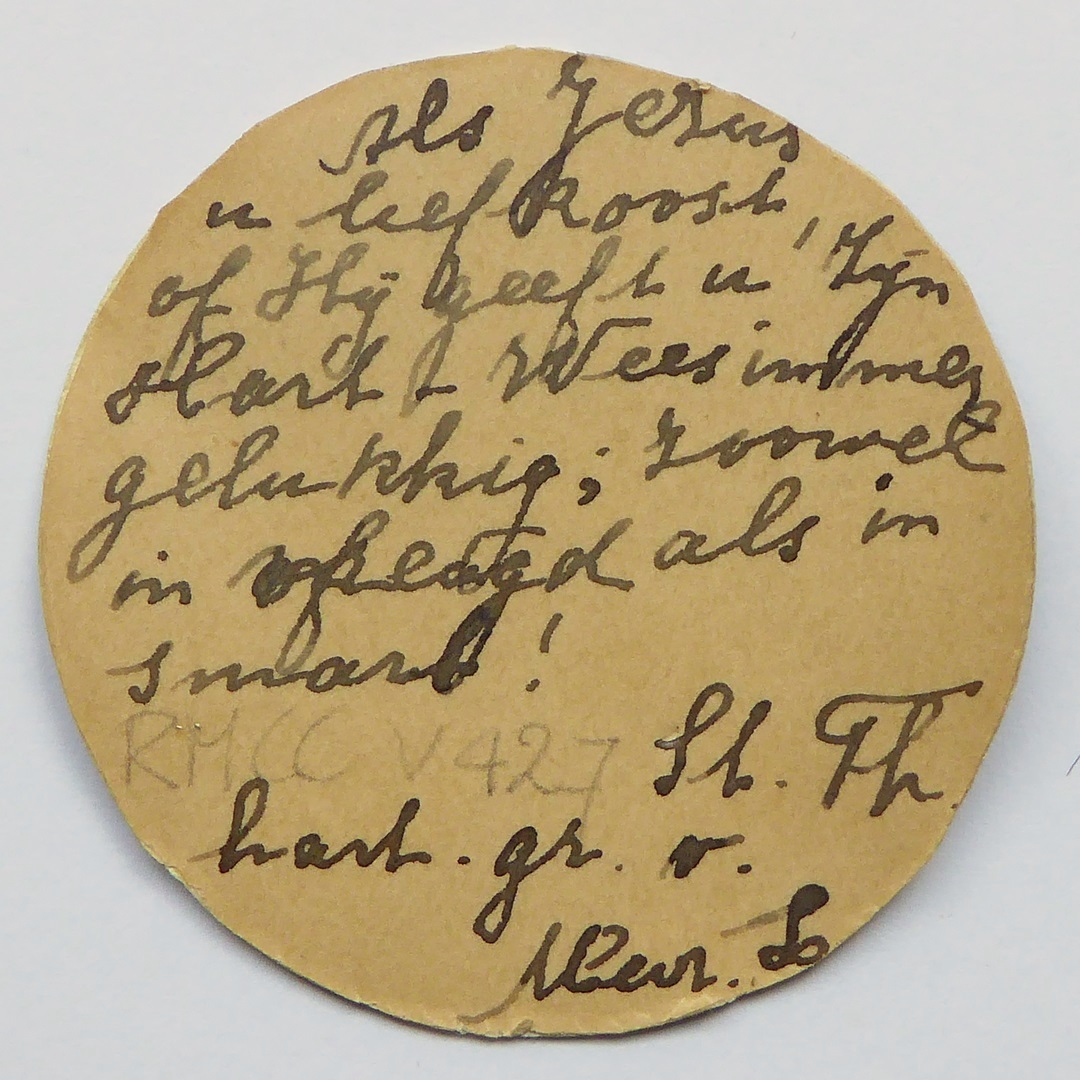 Als Jezus
u liefkoost,
of Hij geeft u Zijn
Hart! Wees immer
gelukkig; zoowel
in vreugd als in
smart!
RMCC V427 St. Th.
hart. gr. v.
Mevr. L